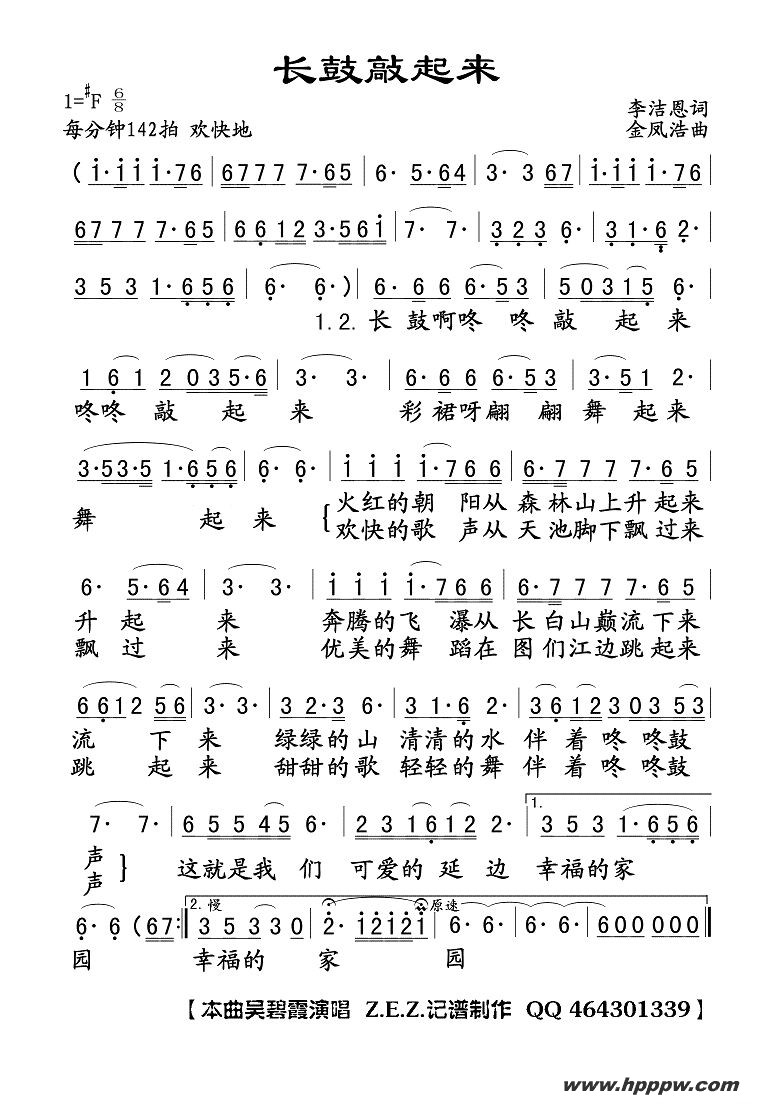 长鼓敲起来
1=#F 6/8
李洁恩词
每分钟142拍 欢快地
金凤浩曲
( i·i i i·76 | 67777 7·65 | 6· 5·64 | 3· 3 67 | i·i i i·76 |
6777 7·65 | 6612 3·56i | 7· 7· | 323 6· | 31·6 2· |
353 1·656 | 6· 6·) | 6· 66 6·53 | 50315 6· |
1.2. 长 鼓啊咚 咚 敲 起 来
161 2035·6 | 3· 3· | 6· 66 6·53 | 3·51 2· |
咚咚 敲 起 来 彩 裙呀翩 翩 舞 起来
3·53·5 1·656 | 6· 6· | i i i i·766 | 6·777 7·65 |
舞 起来 { 火红的朝 阳从 森林山上升起来
欢快的歌 声从 天池脚下飘过来
6· 5·64 | 3· 3· | i i i i·766 | 6·777 7·65 |
升 起 来 奔腾的飞 瀑从 长白山巅流下来
飘 过 来 优美的舞 蹈在 图们江边跳起来
6612 56 | 3· 3· | 32·3 6· | 31·6 2· | 361230353 |
流 下来 绿绿的山 清清的水 伴着咚咚鼓
跳 起来 甜甜的歌 轻轻的舞 伴着咚咚鼓
7· 7· | 65545 6· | 231612 2· | 1. 353 1·656 |
声 这就是我 们 可爱的 延 边 幸福的家
声 }
6· 6 (67:‖ 2.慢 35330 | 2· i2i2i 原速 | 6· 6· | 6· 6· | 600000 ‖
园 幸福的 家 园
【本曲吴碧霞演唱 Z.E.Z.记谱制作 QQ 464301339】
www.hpppw.com